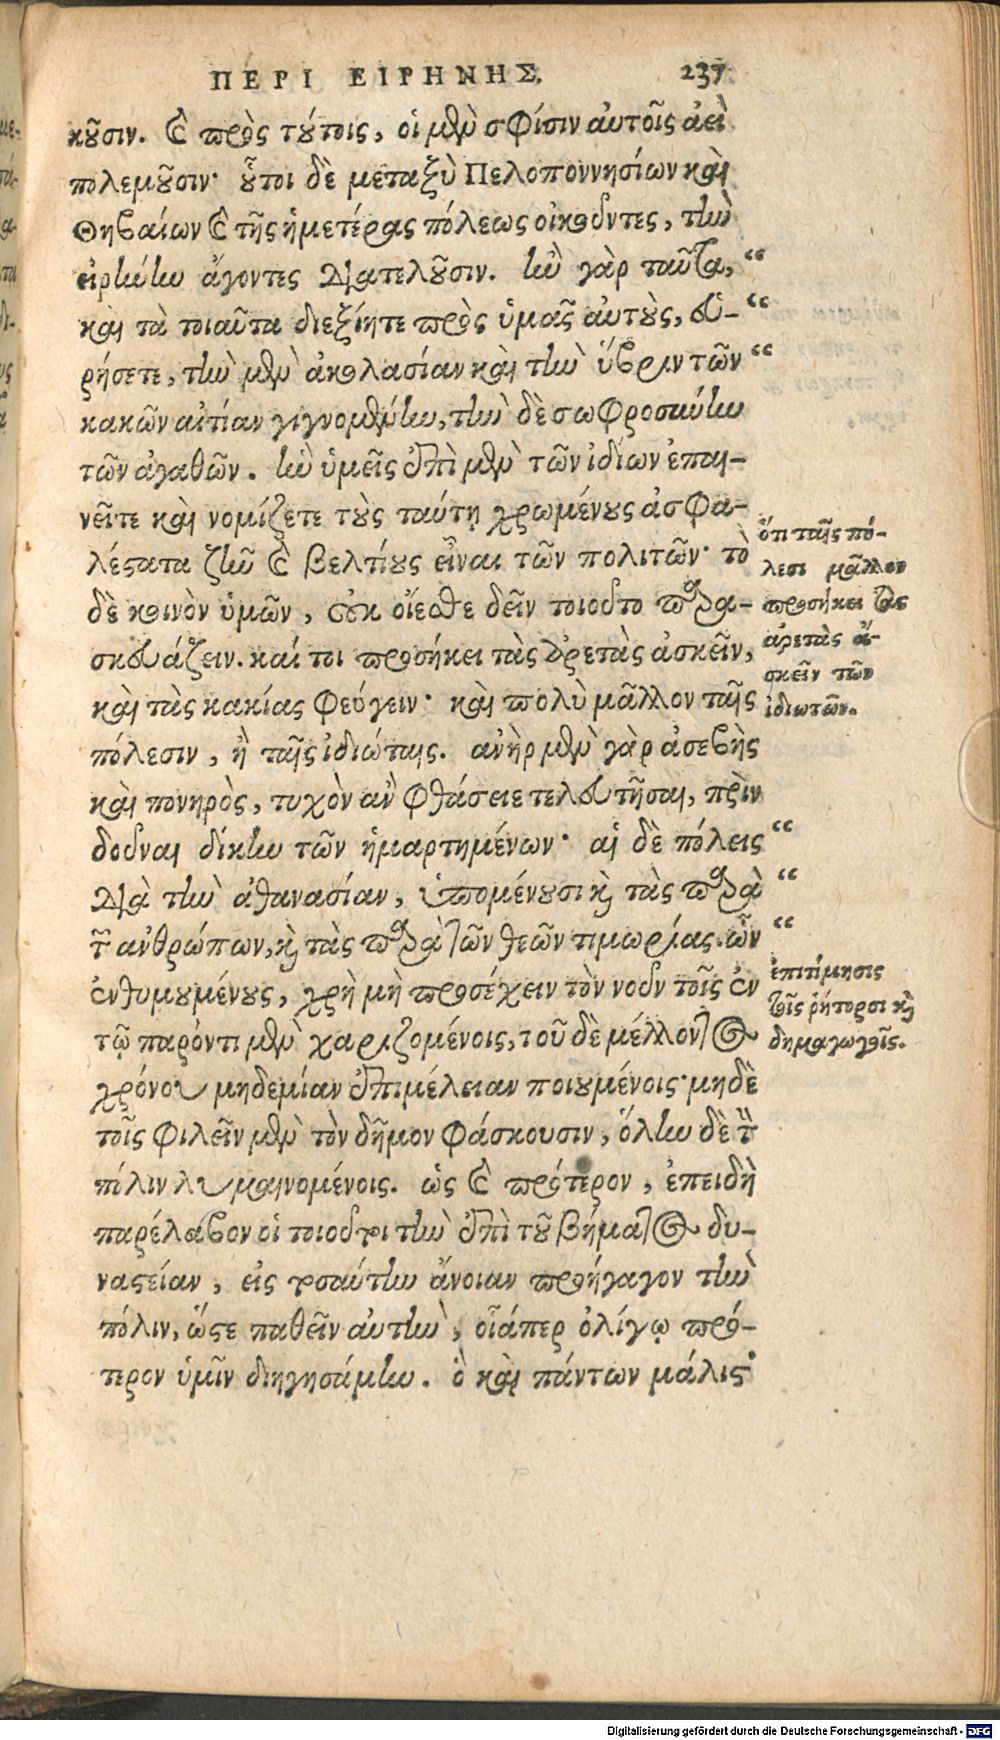 ΠΕΡΙ ΕΙΡΗΝΗΣ. 237
κοῦσιν. καὶ πρὸς τούτοις, οἱ μὲν σφίσιν αὐτοῖς ἀεὶ
πολεμοῦσιν· οὗτοι δὲ μεταξὺ Πελοποννησίων καὶ
Θηβαίων καὶ τῆς ἡμετέρας πόλεως οἰκοῦντες, τὴν
εἰρήνην ἄγοντες διατελοῦσιν. ἢν γὰρ ταῦτα, “
καὶ τὰ τοιαῦτα διεξίητε πρὸς ὑμᾶς αὐτοὺς, εὑ- “
ρήσετε, τὴν μὲν ἀκολασίαν καὶ τὴν ὕβριν τῶν “
κακῶν αἰτίαν γιγνομένην, τὴν δὲ σωφροσύνην
τῶν ἀγαθῶν. ἣν ὑμεῖς ἐπὶ μὲν τῶν ἰδίων ἐπαι-
νεῖτε καὶ νομίζετε τοὺς ταύτῃ χρωμένους ἀσφα-
λέστατα ζῆν καὶ βελτίους εἶναι τῶν πολιτῶν· τὸ
δὲ κοινὸν ὑμῶν, οὐκ οἴεσθε δεῖν τοιοῦτο παρα-
σκευάζειν. καί τοι προσήκει τὰς ἀρετὰς ἀσκεῖν,
καὶ τὰς κακίας φεύγειν· καὶ πολὺ μᾶλλον ταῖς
πόλεσιν, ἢ ταῖς ἰδιώταις. ἀνὴρ μὲν γὰρ ἀσεβὴς
καὶ πονηρὸς, τυχὸν ἂν φθάσειε τελευτῆσαι, πρὶν
δοῦναι δίκην τῶν ἡμαρτημένων· αἱ δὲ πόλεις “
διὰ τὴν ἀθανασίαν, ὑπομένουσι καὶ τὰς παρὰ “
τῶν ἀνθρώπων, καὶ τὰς παρὰ τῶν θεῶν τιμωρίας. ὧν “
ἐνθυμουμένους, χρὴ μὴ προσέχειν τὸν νοῦν τοῖς ἐν
τῷ παρόντι μὲν χαριζομένοις, τοῦ δὲ μέλλοντος
χρόνου μηδεμίαν ἐπιμέλειαν ποιουμένοις· μηδὲ
τοῖς φιλεῖν μὲν τὸν δῆμον φάσκουσιν, ὅλην δὲ τὴν
πόλιν λυμαινομένοις. ὡς καὶ πρότερον, ἐπειδὴ
παρέλαβον οἱ τοιοῦτοι τὴν ἐπὶ τοῦ βήματος δυ-
ναστείαν, εἰς τοσαύτην ἄνοιαν προήγαγον τὴν
πόλιν, ὥστε παθεῖν αὐτὴν, οἷάπερ ὀλίγῳ πρό-
τερον ὑμῖν διηγησάμην. ὃ καὶ πάντων μάλιστ’
ὅτι ταῖς πό-
λεσι μᾶλλον
προσήκει τὰς
ἀρετὰς ἀ-
σκεῖν τῶν
ἰδιωτῶν.
ἐπιτίμησις
τοῖς ῥήτορσι καὶ
δημαγωγοῖς.
Digitalisierung gefördert durch die Deutsche Forschungsgemeinschaft - DFG